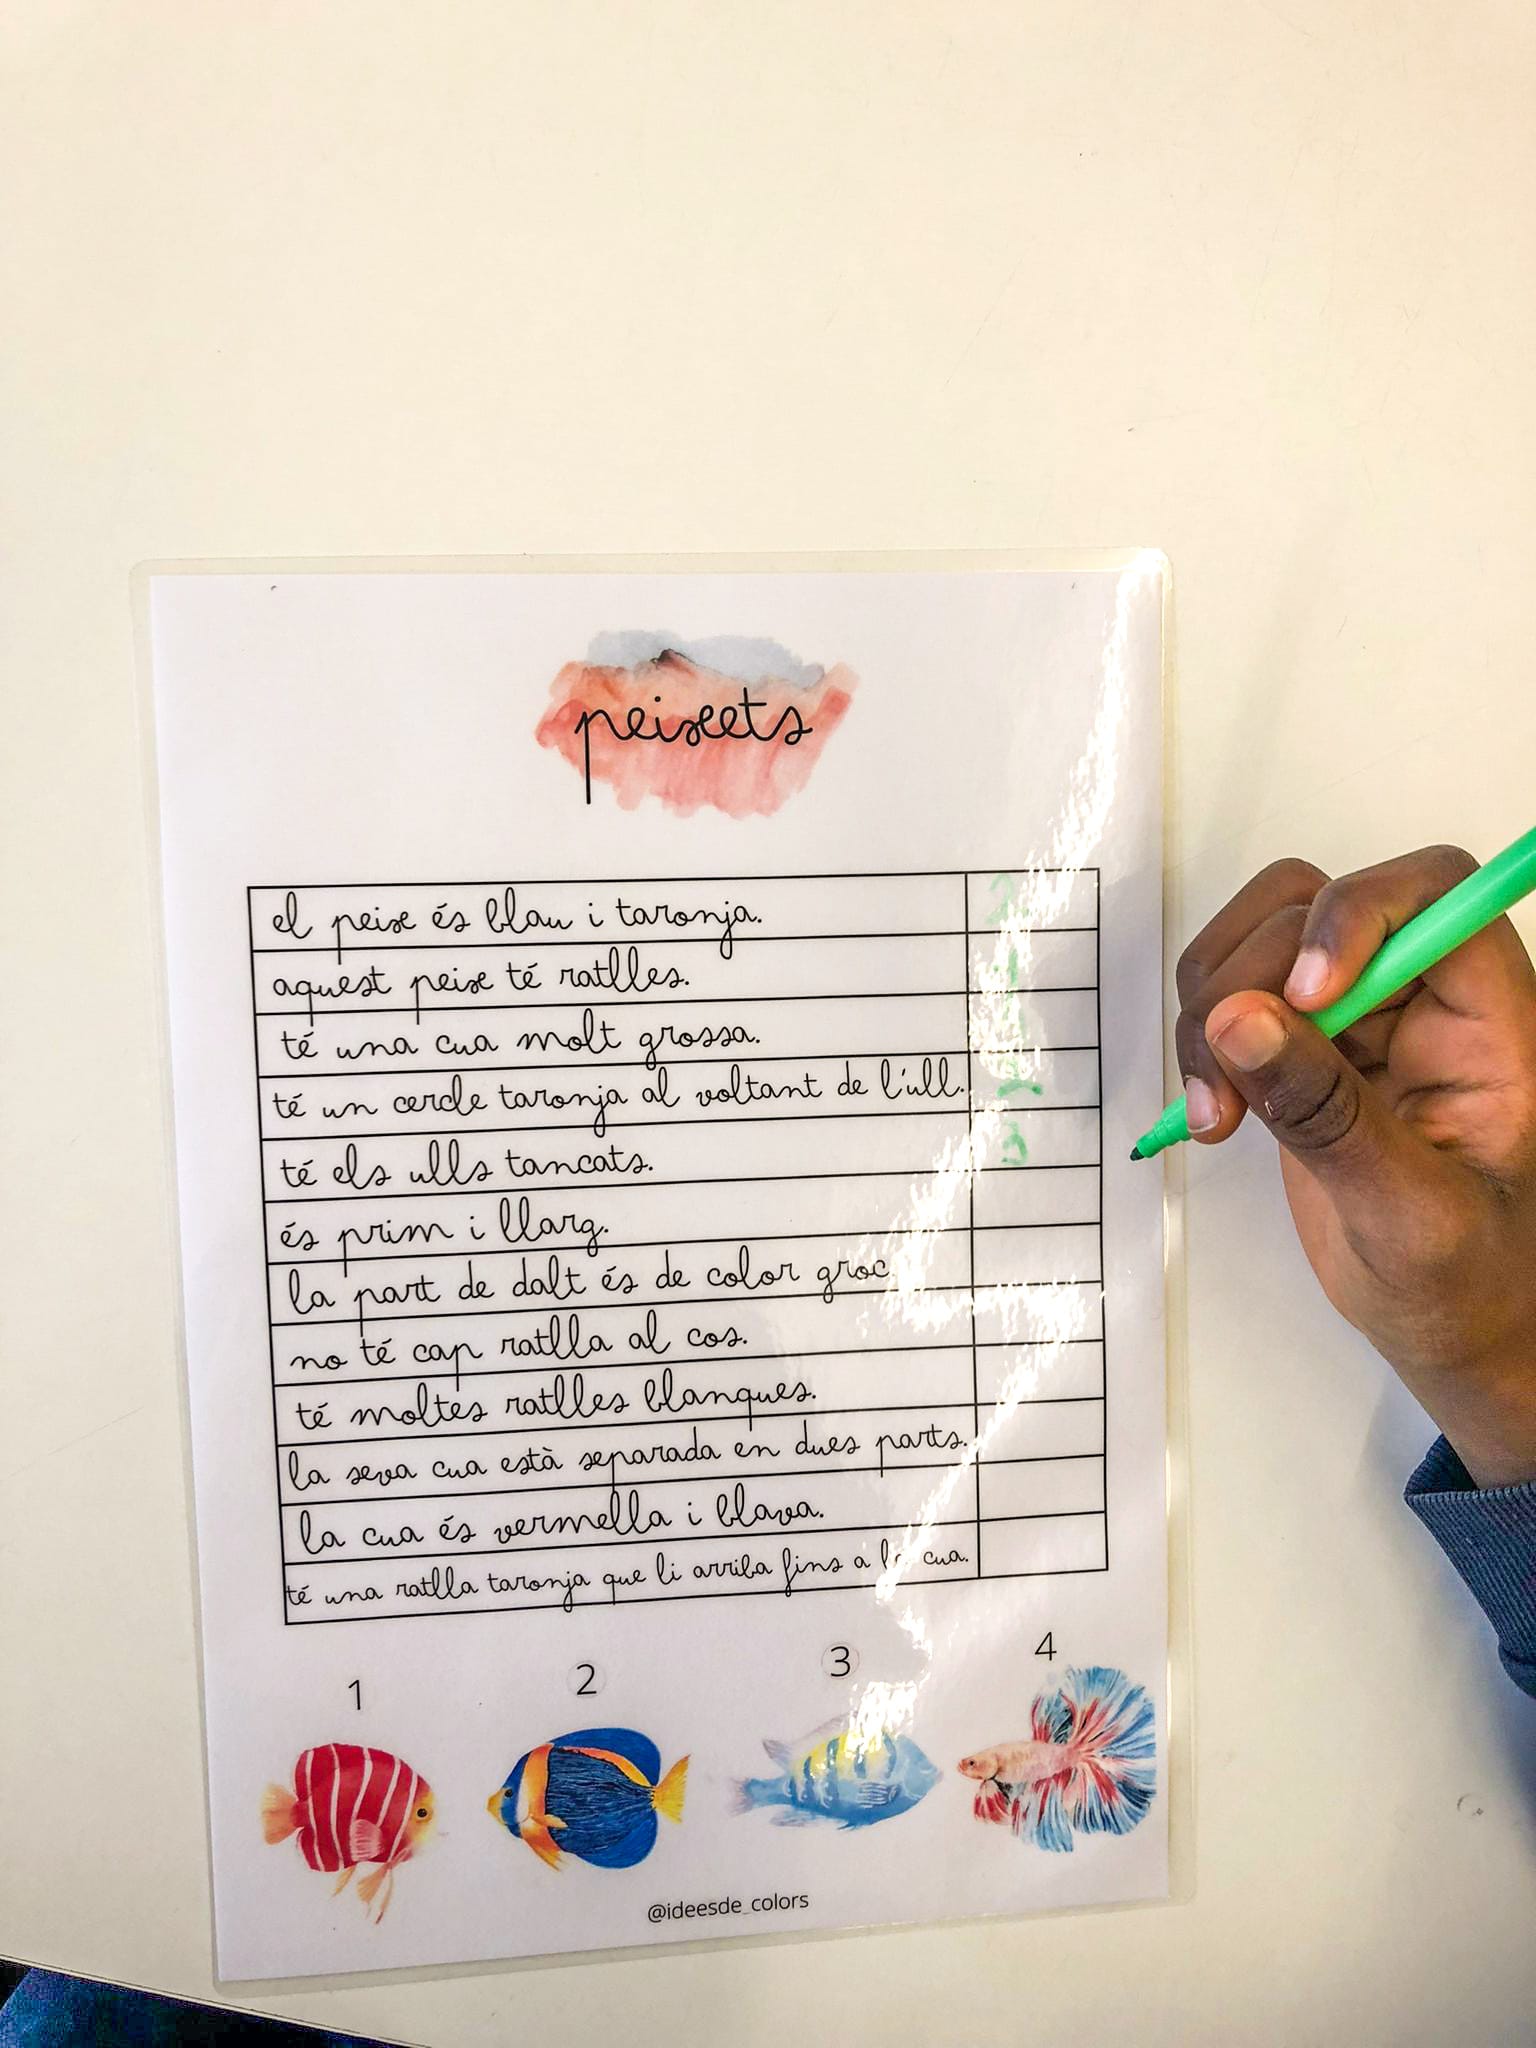 peixets
el peix és blau i taronja. 2
aquest peix té ratlles.
té una cua molt grossa.
té un cercle taronja al voltant de l'ull.
té els ulls tancats.
és prim i llarg.
la part de dalt és de color groc
no té cap ratlla al cos.
té moltes ratlles blanques.
la seva cua està separada en dues parts.
la cua és vermella i blava.
té una ratlla taronja que li arriba fins a la cua.
1 2 3 4
@ideesde_colors